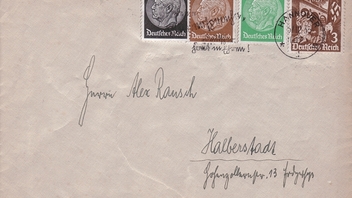 Deutsches Reich
Deutsches Reich
Deutsches Reich
HANNOVER
3
Deutsches Reich
Herrn Alex Rausch
Halberstadt
Hohenzollernstr. 13